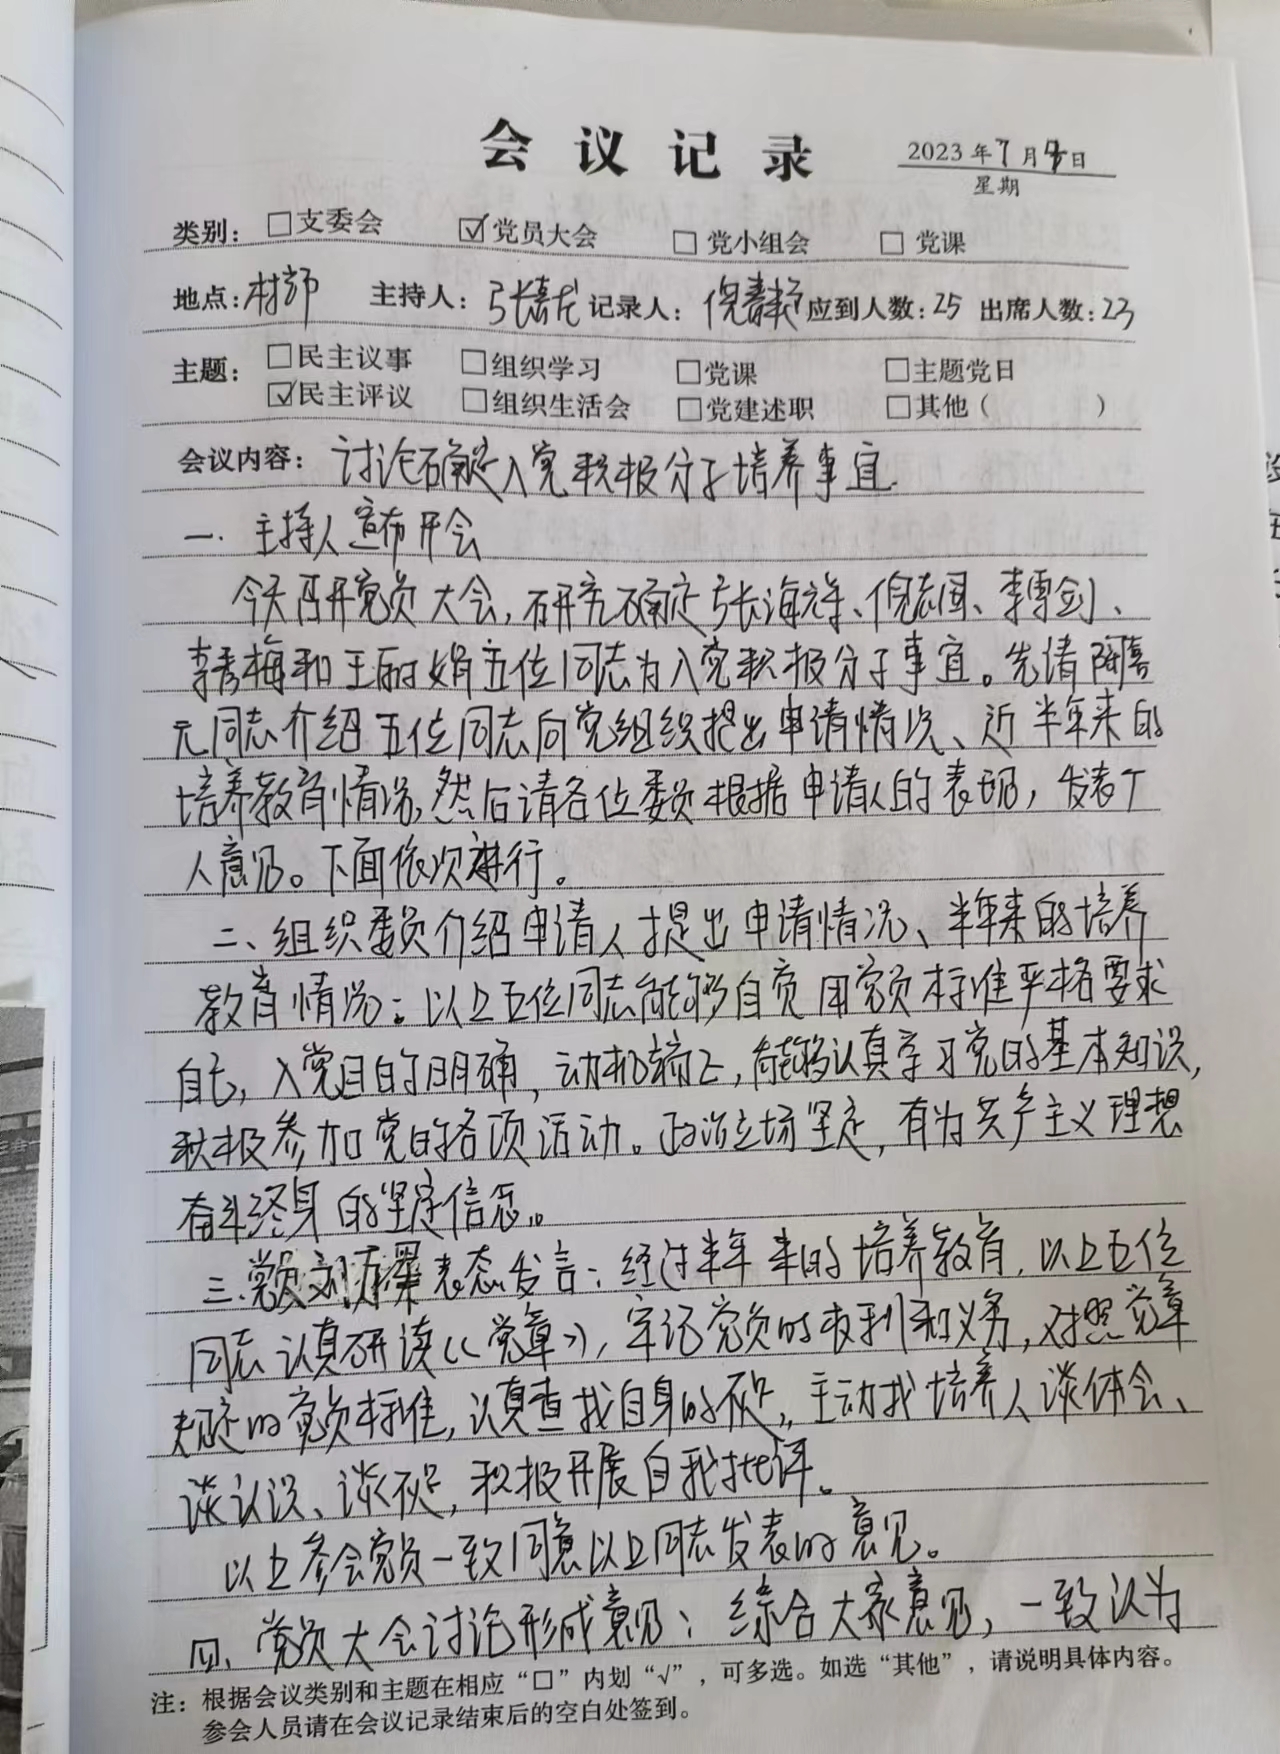 会议记录
2023年7月日
星期
类别：□支委会 ☑党员大会 □党小组会 □党课
地点：村部 主持人：张嘉龙 记录人：倪 应到人数：25 出席人数：23
主题：□民主议事 □组织学习 □党课 □主题党日
☑民主评议 □组织生活会 □党建述职 □其他（ ）
会议内容：讨论确定入党积极分子培养事宜.
一. 主持人宣布开会
今天召开党员大会，研究确定张海祥、倪志国、李博剑、
李秀梅和王丽娟五位同志为入党积极分子事宜。先请陶喜
元同志介绍五位同志向党组织提出申请情况、近半年来的
培养教育情况，然后请各位委员根据申请人的表现，发表个
人意见。下面依次进行。
二、组织委员介绍申请人提出申请情况、半年来的培养
教育情况：以上五位同志能够自觉用党员标准严格要求
自己，入党目的明确，动机端正，能够认真学习党的基本知识，
积极参加党的各项活动。政治立场坚定，有为共产主义理想
奋斗终身的坚定信念。
三.党员刘表态发言：经过半年来的培养教育，以上五位
同志认真研读《党章》，牢记党员的权利和义务，对照党章
规定的党员标准，认真查找自身的不足，主动找培养人谈体会、
谈认识、谈不足，积极开展自我批评。
以上参会党员一致同意以上同志发表的意见。
四、党员大会讨论形成意见：综合大家意见，一致认为
注：根据会议类别和主题在相应“□”内划“√”，可多选。如选“其他”，请说明具体内容。
参会人员请在会议记录结束后的空白处签到。